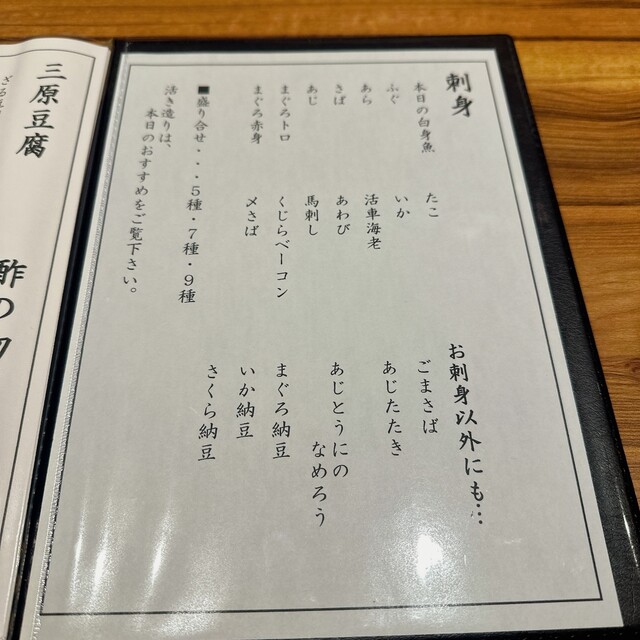 刺身
本日の白身魚
ふぐ
あら
さば
あじ
まぐろトロ
まぐろ赤身
たこ
いか
活車海老
あわび
馬刺し
くじらベーコン
〆さば
■盛り合せ・・・5種・7種・9種
活き造りは、
本日のおすすめをご覧下さい。
お刺身以外にも…
ごまさば
あじたたき
あじとうにの
なめろう
まぐろ納豆
いか納豆
さくら納豆
三原豆腐
酢の